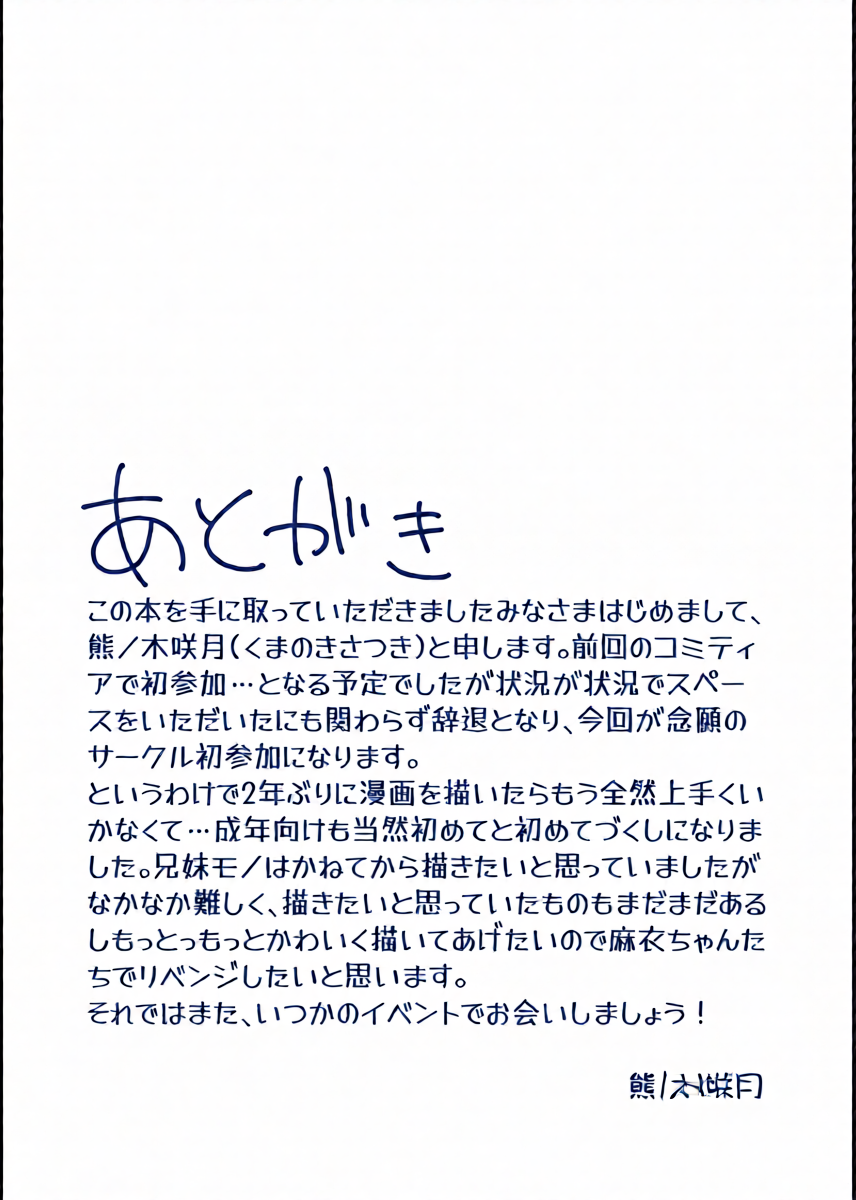 あとがき
この本を手に取っていただきましたみなさまはじめまして、
熊ノ木咲月(くまのきさつき)と申します。前回のコミティ
アで初参加…となる予定でしたが状況が状況でスペー
スをいただいたにも関わらず辞退となり、今回が念願の
サークル初参加になります。
というわけで2年ぶりに漫画を描いたらもう全然上手くい
かなくて…成年向けも当然初めてと初めてづくしになりま
した。兄妹モノはかねてから描きたいと思っていましたが
なかなか難しく、描きたいと思っていたものもまだまだある
しもっとっもっとかわいく描いてあげたいので麻衣ちゃんた
ちでリベンジしたいと思います。
それではまた、いつかのイベントでお会いしましょう！
熊ノ木咲月